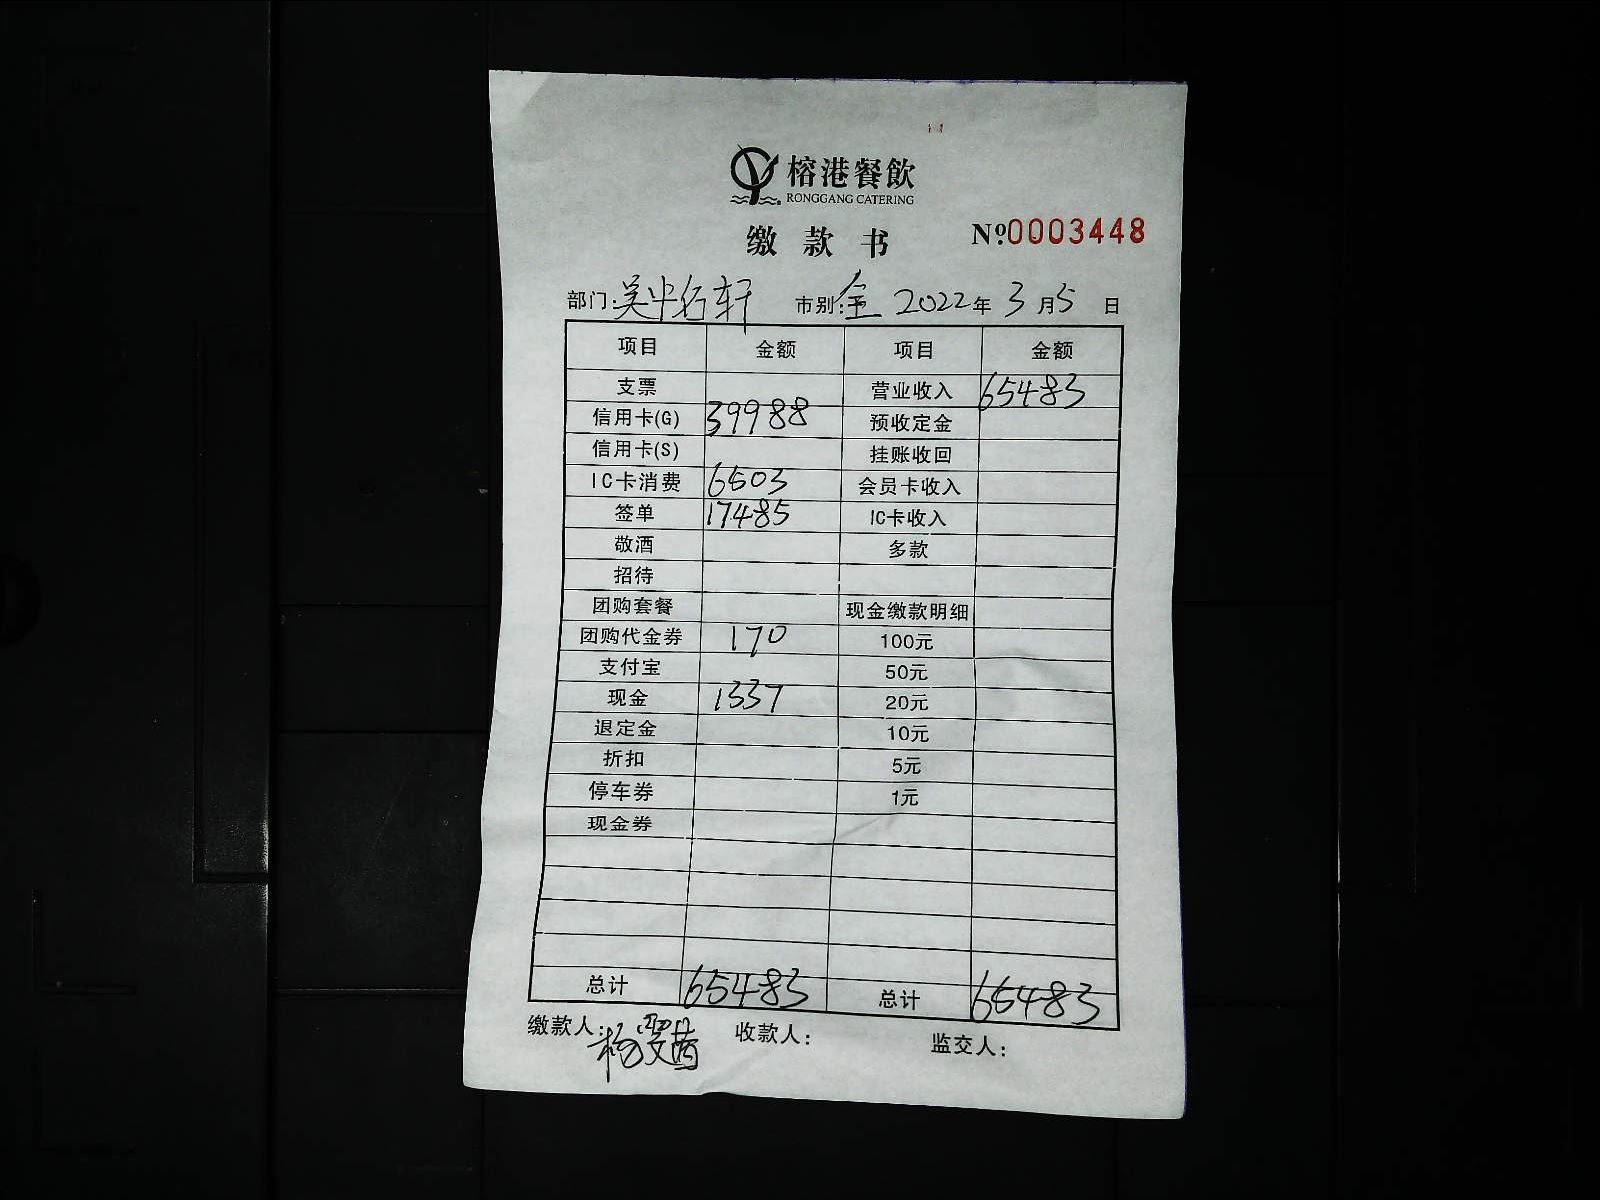 榕港餐飲
RONGGANG CATERING
缴款书 №0003448
部门: 吴中名轩 市别: 全 2022年3月5日
项目 金额 项目 金额
支票 营业收入 65483
信用卡(G) 39988 预收定金
信用卡(S) 挂账收回
IC卡消费 6503 会员卡收入
签单 17485 IC卡收入
敬酒 多款
招待
团购套餐 现金缴款明细
团购代金券 170 100元
支付宝 50元
现金 1337 20元
退定金 10元
折扣 5元
停车券 1元
现金券
总计 65483 总计 65483
缴款人: 杨雯茜 收款人: 监交人: